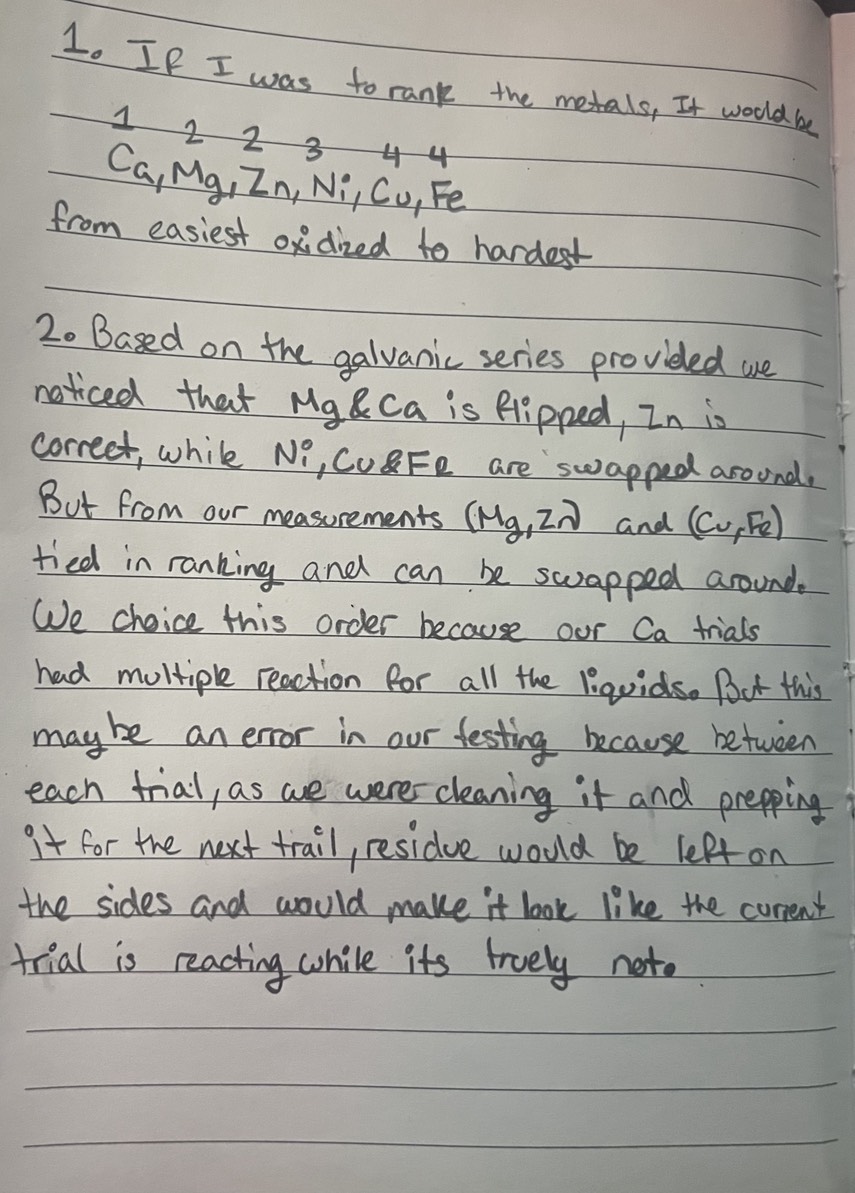 1. If I was to rank the metals, It would be
1 2 2 3 4 4
Ca, Mg, Zn, Ni, Cu, Fe
from easiest oxidized to hardest
2. Based on the galvanic series provided we
noticed that Mg & Ca is flipped, Zn is
correct, while Ni, Cu & Fe are swapped around.
But from our measurements (Mg, Zn) and (Cu, Fe)
tied in ranking and can be swapped around.
We choice this order because our Ca trials
had multiple reaction for all the liquids. But this
maybe an error in our testing because between
each trial, as we were cleaning it and prepping
it for the next trail, residue would be left on
the sides and would make it look like the current
trial is reacting while its truely not.